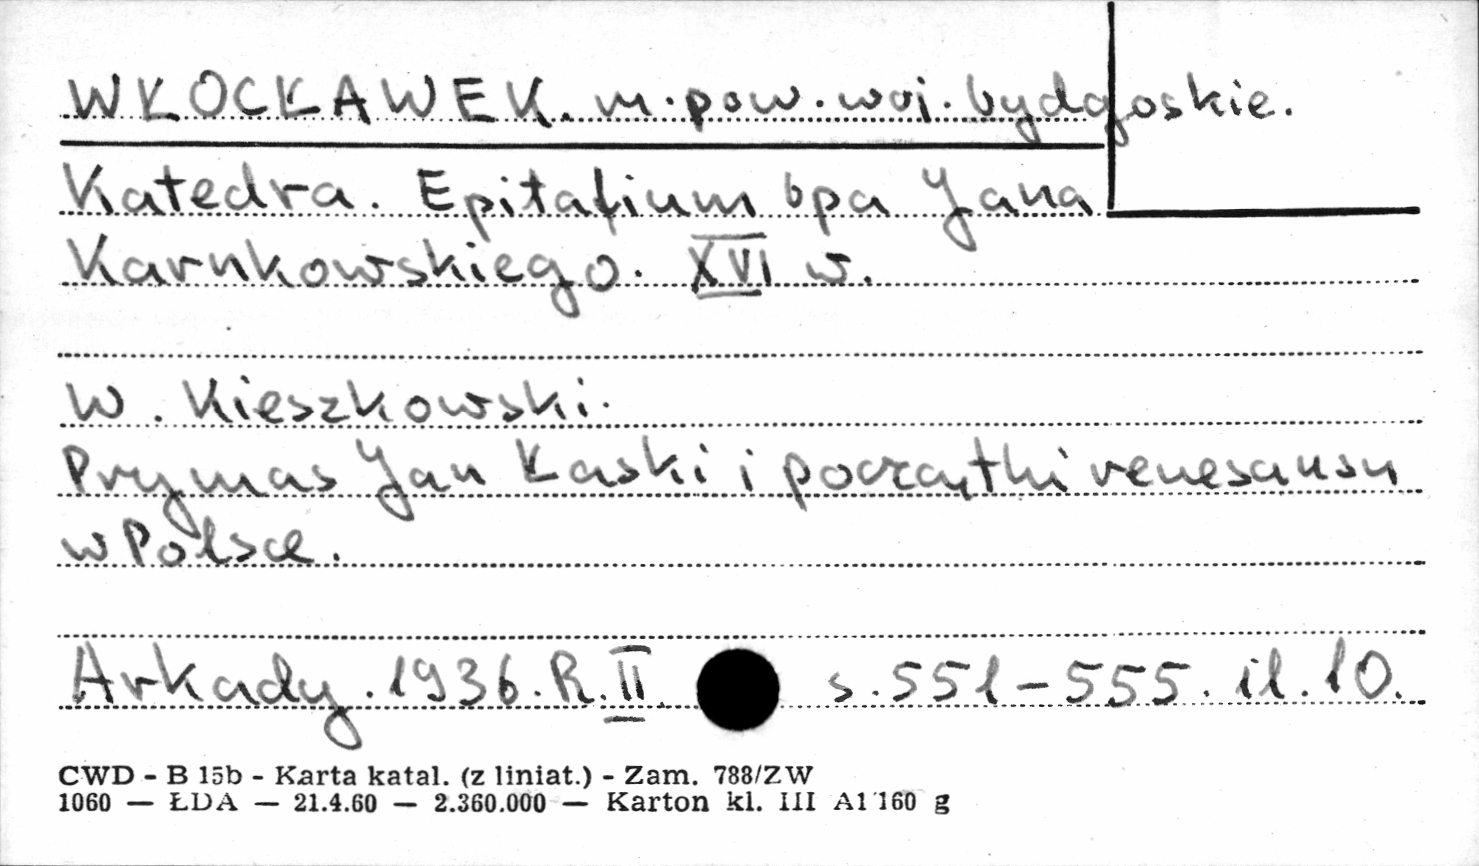 WŁOCŁAWEK. m. pow. woj. bydgoskie.
Katedra. Epitafium bpa Jana
Karnkowskiego. XVI w.
W. Kieszkowski.
Prymas Jan Łaski i początki renesansu
w Polsce.
Arkady. 1936. R. II. s. 551-555. il. 10.
CWD - B 15b - Karta katal. (z liniat.) - Zam. 788/ZW
1060 — ŁDA — 21.4.60 — 2.360.000 — Karton kl. III A1 160 g